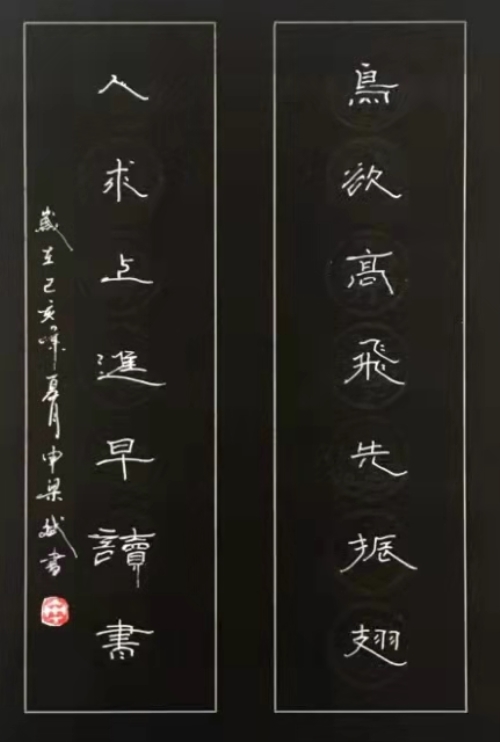 鳥欲高飛先振翅
人求上進早讀書
歲在己亥年夏月申梁斌書